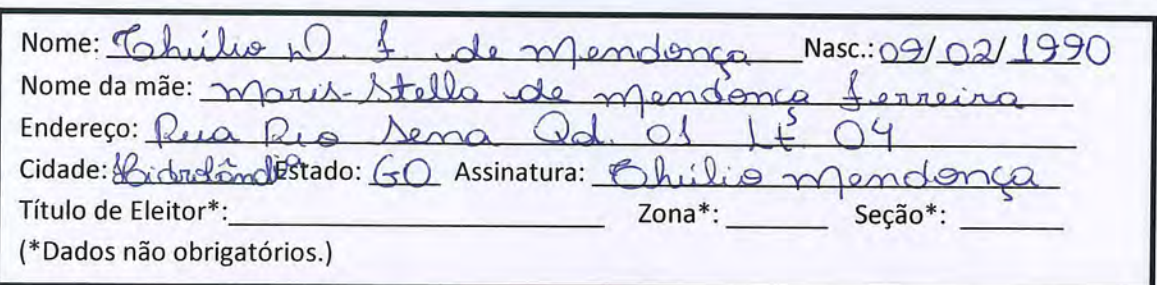 Nome: Thúlio D. f. de Mendonça Nasc.: 09/02/1990
Nome da mãe: Maris-Stella de Mendonça ferreira
Endereço: Rua Rio Sena Qd. 01 Lts 04
Cidade: Hidrolândia Estado: GO Assinatura: Thúlio Mendonça
Título de Eleitor*: Zona*: Seção*:
(*Dados não obrigatórios.)